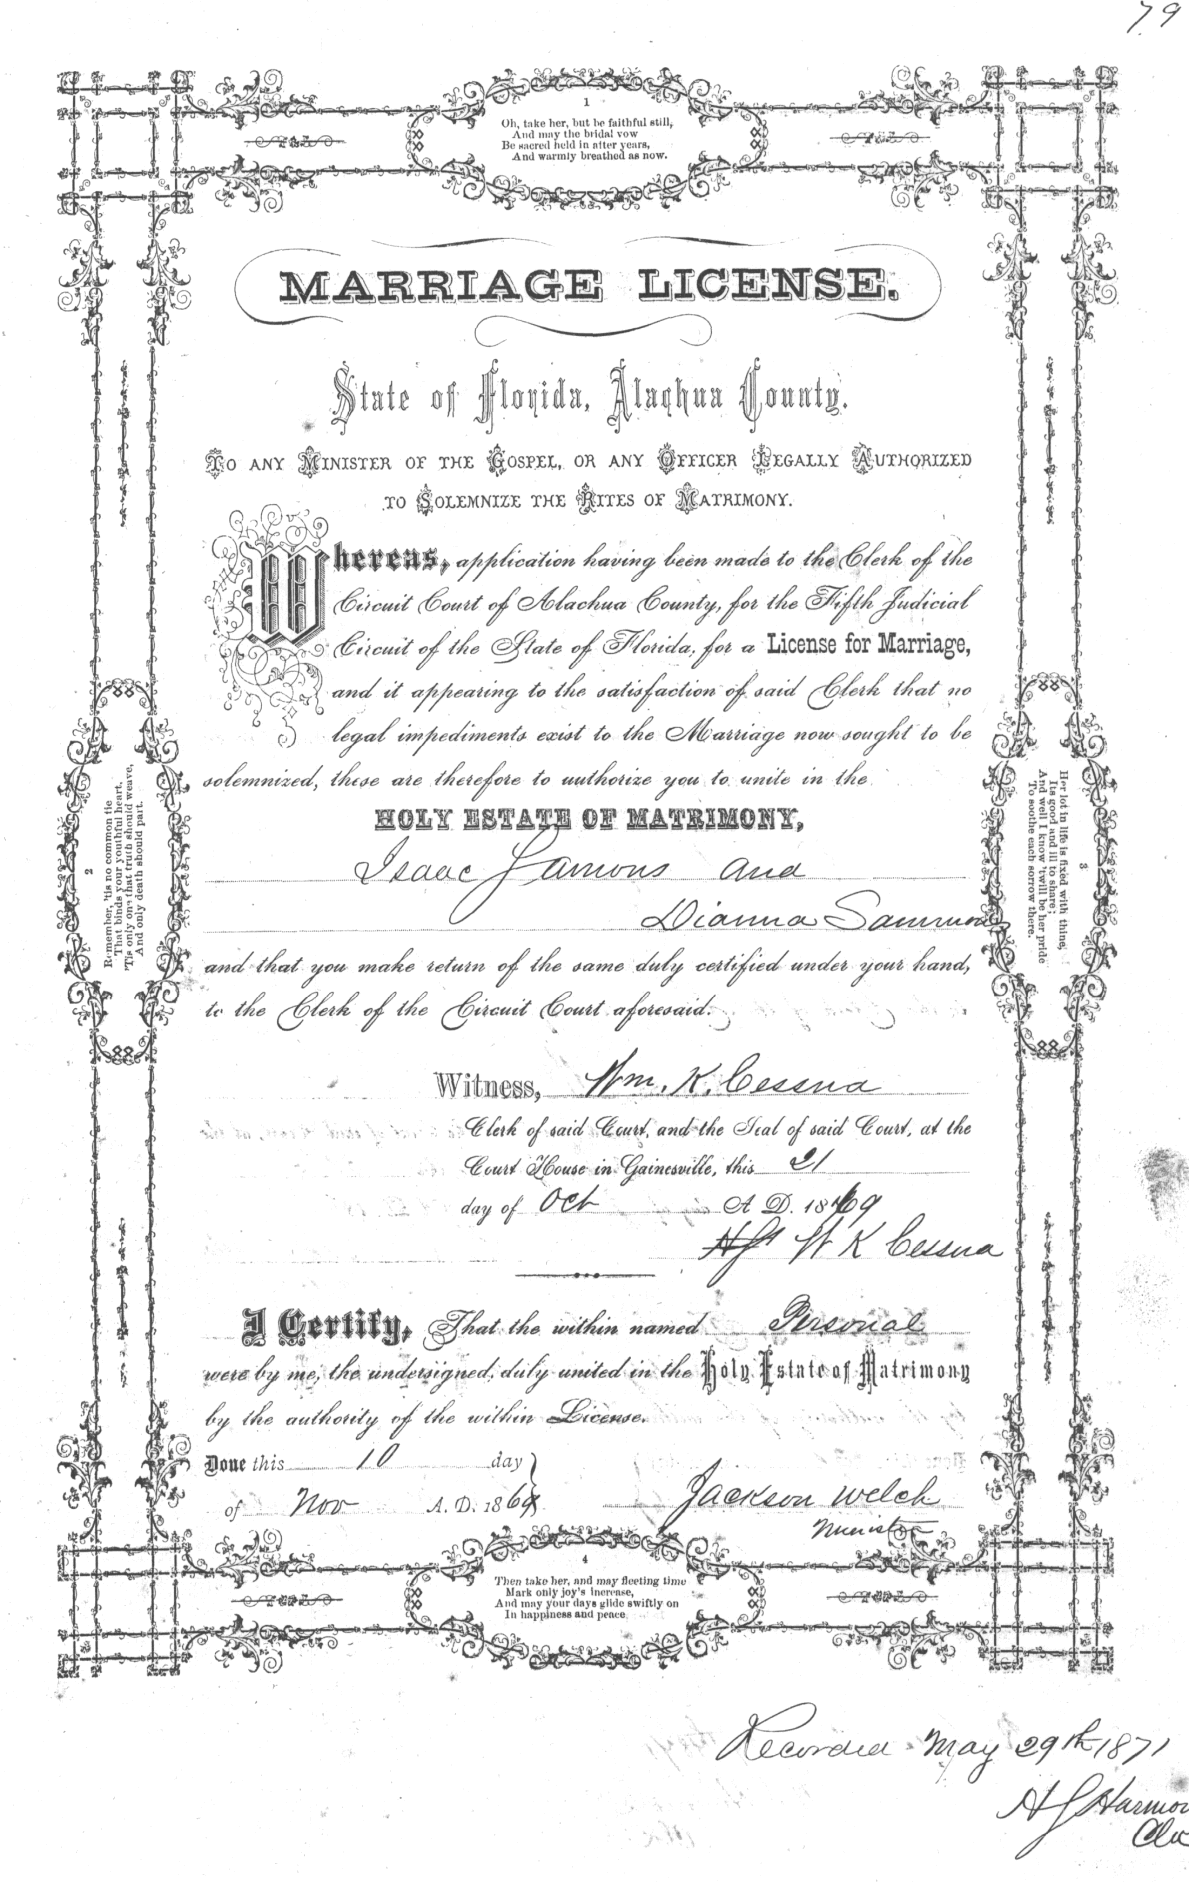 79
1
Oh, take her, but be faithful still,
And may the bridal vow
Be sacred held in after years,
And warmly breathed as now.
MARRIAGE LICENSE.
State of Florida, Alachua County.
TO ANY MINISTER OF THE GOSPEL, OR ANY OFFICER LEGALLY AUTHORIZED
TO SOLEMNIZE THE RITES OF MATRIMONY.
Whereas, application having been made to the Clerk of the
Circuit Court of Alachua County, for the Fifth Judicial
Circuit of the State of Florida, for a License for Marriage,
and it appearing to the satisfaction of said Clerk that no
legal impediments exist to the Marriage now sought to be
solemnized, these are therefore to authorize you to unite in the
HOLY ESTATE OF MATRIMONY,
Isaac and
Dianna Sammons
and that you make return of the same duly certified under your hand,
to the Clerk of the Circuit Court aforesaid.
2
Remember, 'tis no common tie
That binds your youthful heart,
'Tis only one that truth should weave,
And only death should part.
3
Her lot in life is fixed with thine,
Its good and ill to share;
And well I know 'twill be her pride
To soothe each sorrow there.
Witness, Wm. K. Cessna
Clerk of said Court, and the Seal of said Court, at the
Court House in Gainesville, this 21
day of Oct A D. 1869
W K Cessna
I Certify, That the within named Personal
were by me, the undersigned, duly united in the Holy Estate of Matrimony
by the authority of the within License.
Done this 10 day
of Nov A. D. 1869
Jackson Welch
Minister
4
Then take her, and may fleeting time
Mark only joy's increase,
And may your days glide swiftly on
In happiness and peace.
Recorded May 29th 1871
H S Harmon
Clk